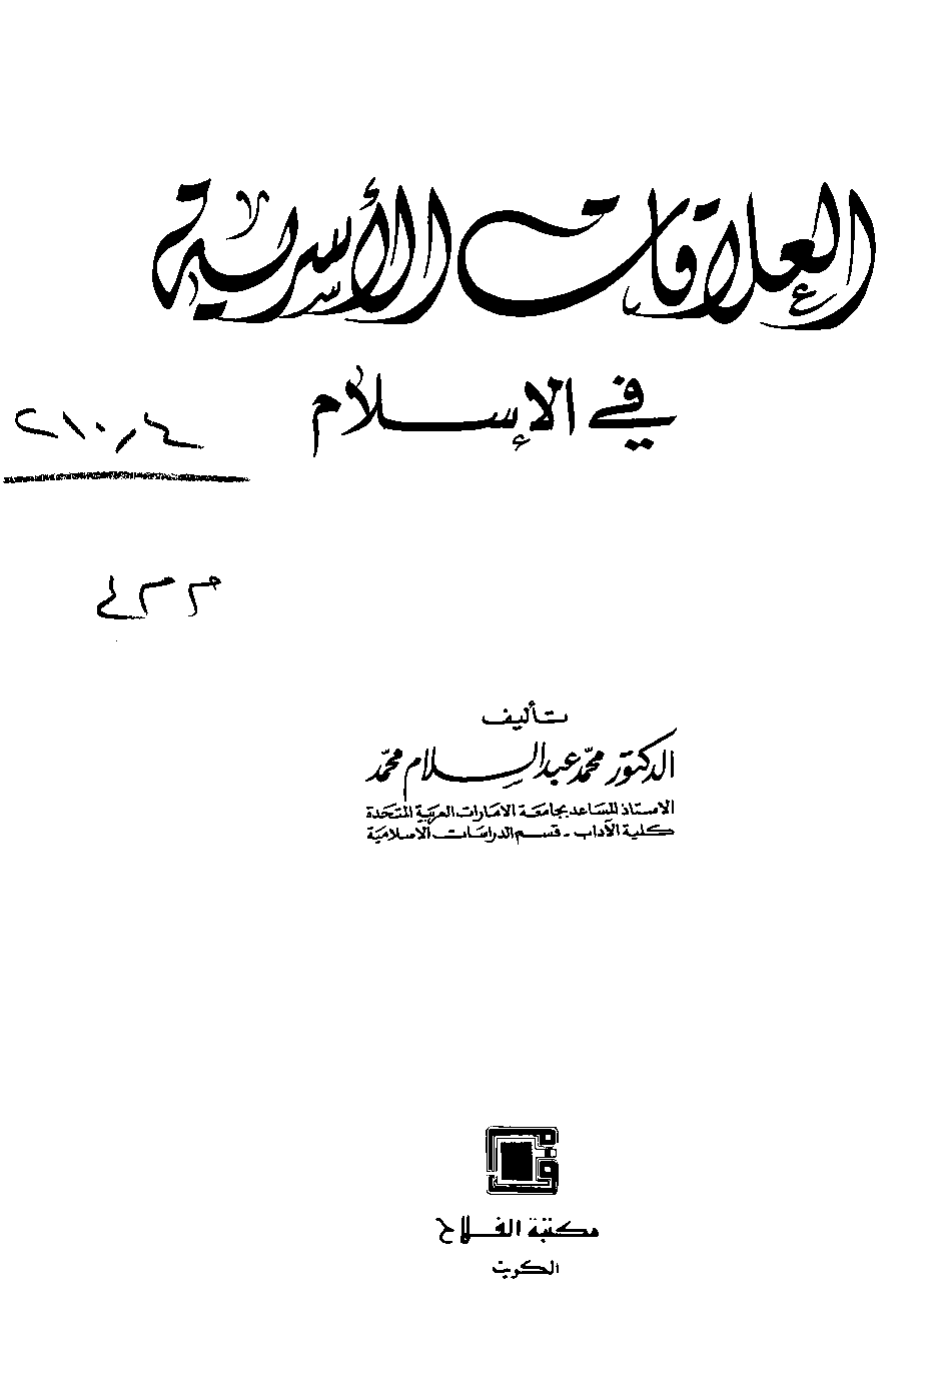 العلاقات الأسرية
في الإسلام
٢١٠,٤
تأليف
الدكتور محمد عبد السلام محمد
الاستاذ المساعد بجامعة الامارات العربية المتحدة
كلية الآداب - قسم الدراسات الاسلامية
مكتبة الفلاح
الكويت